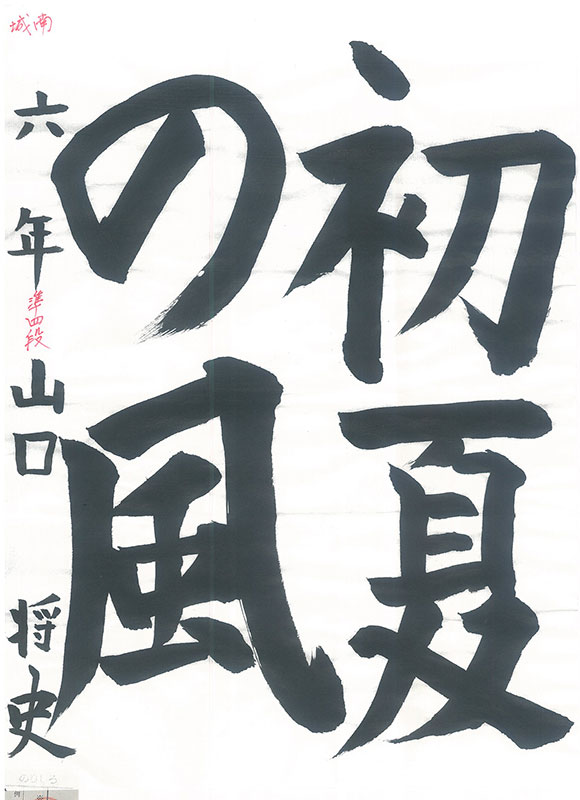 初夏
の風
六年 準四段 山口 将史
南城